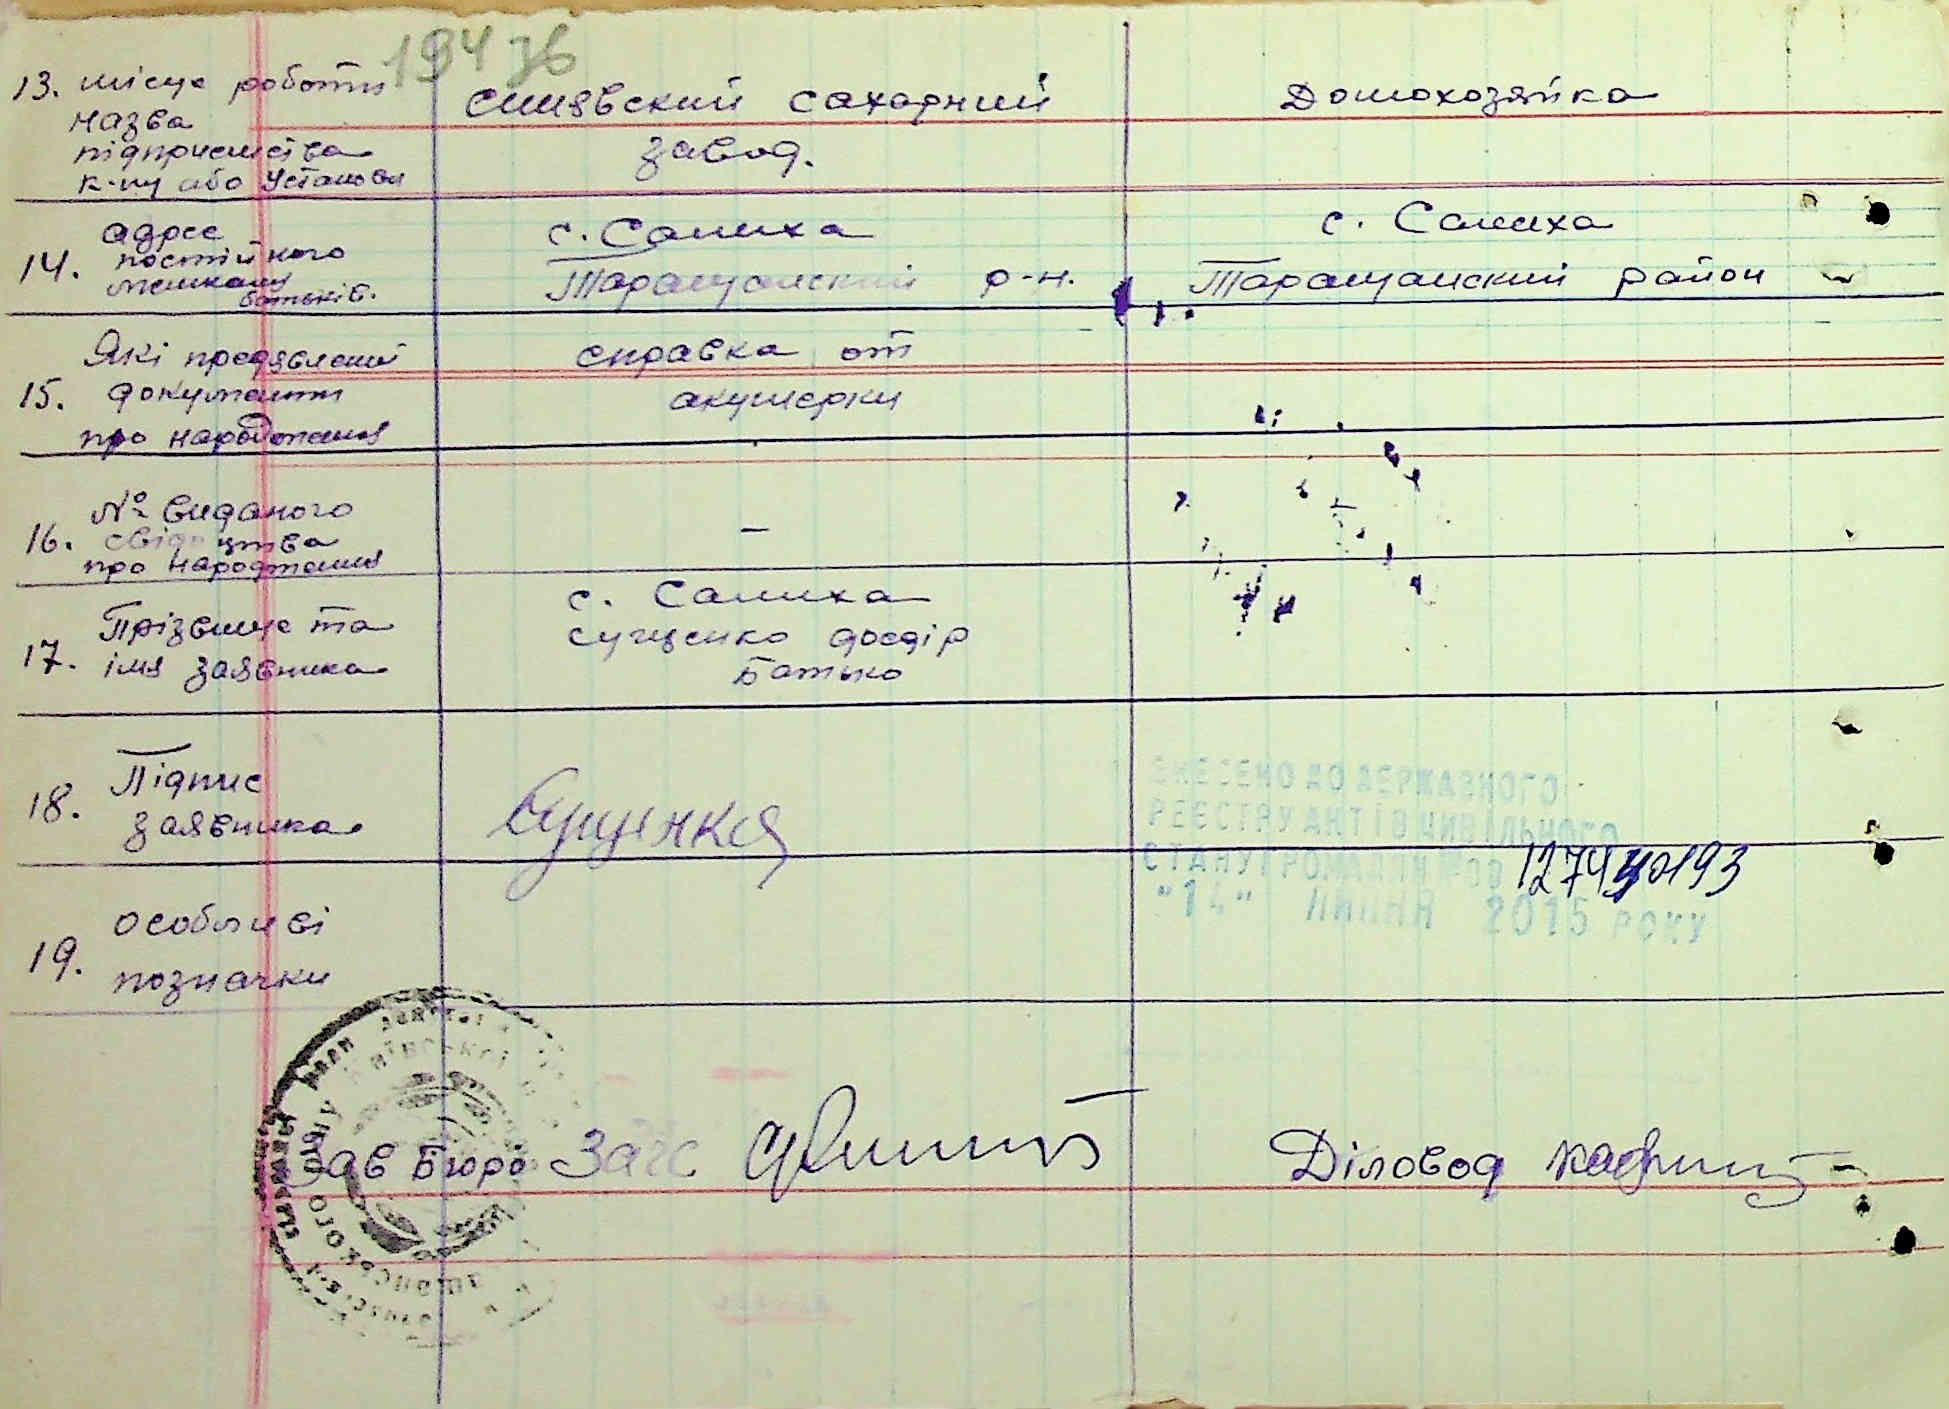 194 зб
13. місце роботи
назва
підприємства
к-пу або установи
синявский сахарний
завод.
Домохозяйка
14. адрес
постійного
мешкання
батьків.
с. Салиха
Таращанский р-н.
с. Салиха
Таращанский район
15. Які предявлені
документи
про народження
справка от
акушерки
16. № виданого
свідоцтва
про народження
–
17. Прізвище та
імя заявника
с. Салиха
Сущенко Федір
Батько
18. Підпис
заявника
Сущенко
ВНЕСЕНО ДО ДЕРЖАВНОГО
РЕЄСТРУ АКТІВ ЦИВІЛЬНОГО
СТАНУ ГРОМАДЯН № 00
"14" ЛИПНЯ 2015 РОКУ
19. особливі
позначки
Зав Бюро Загс
Діловод